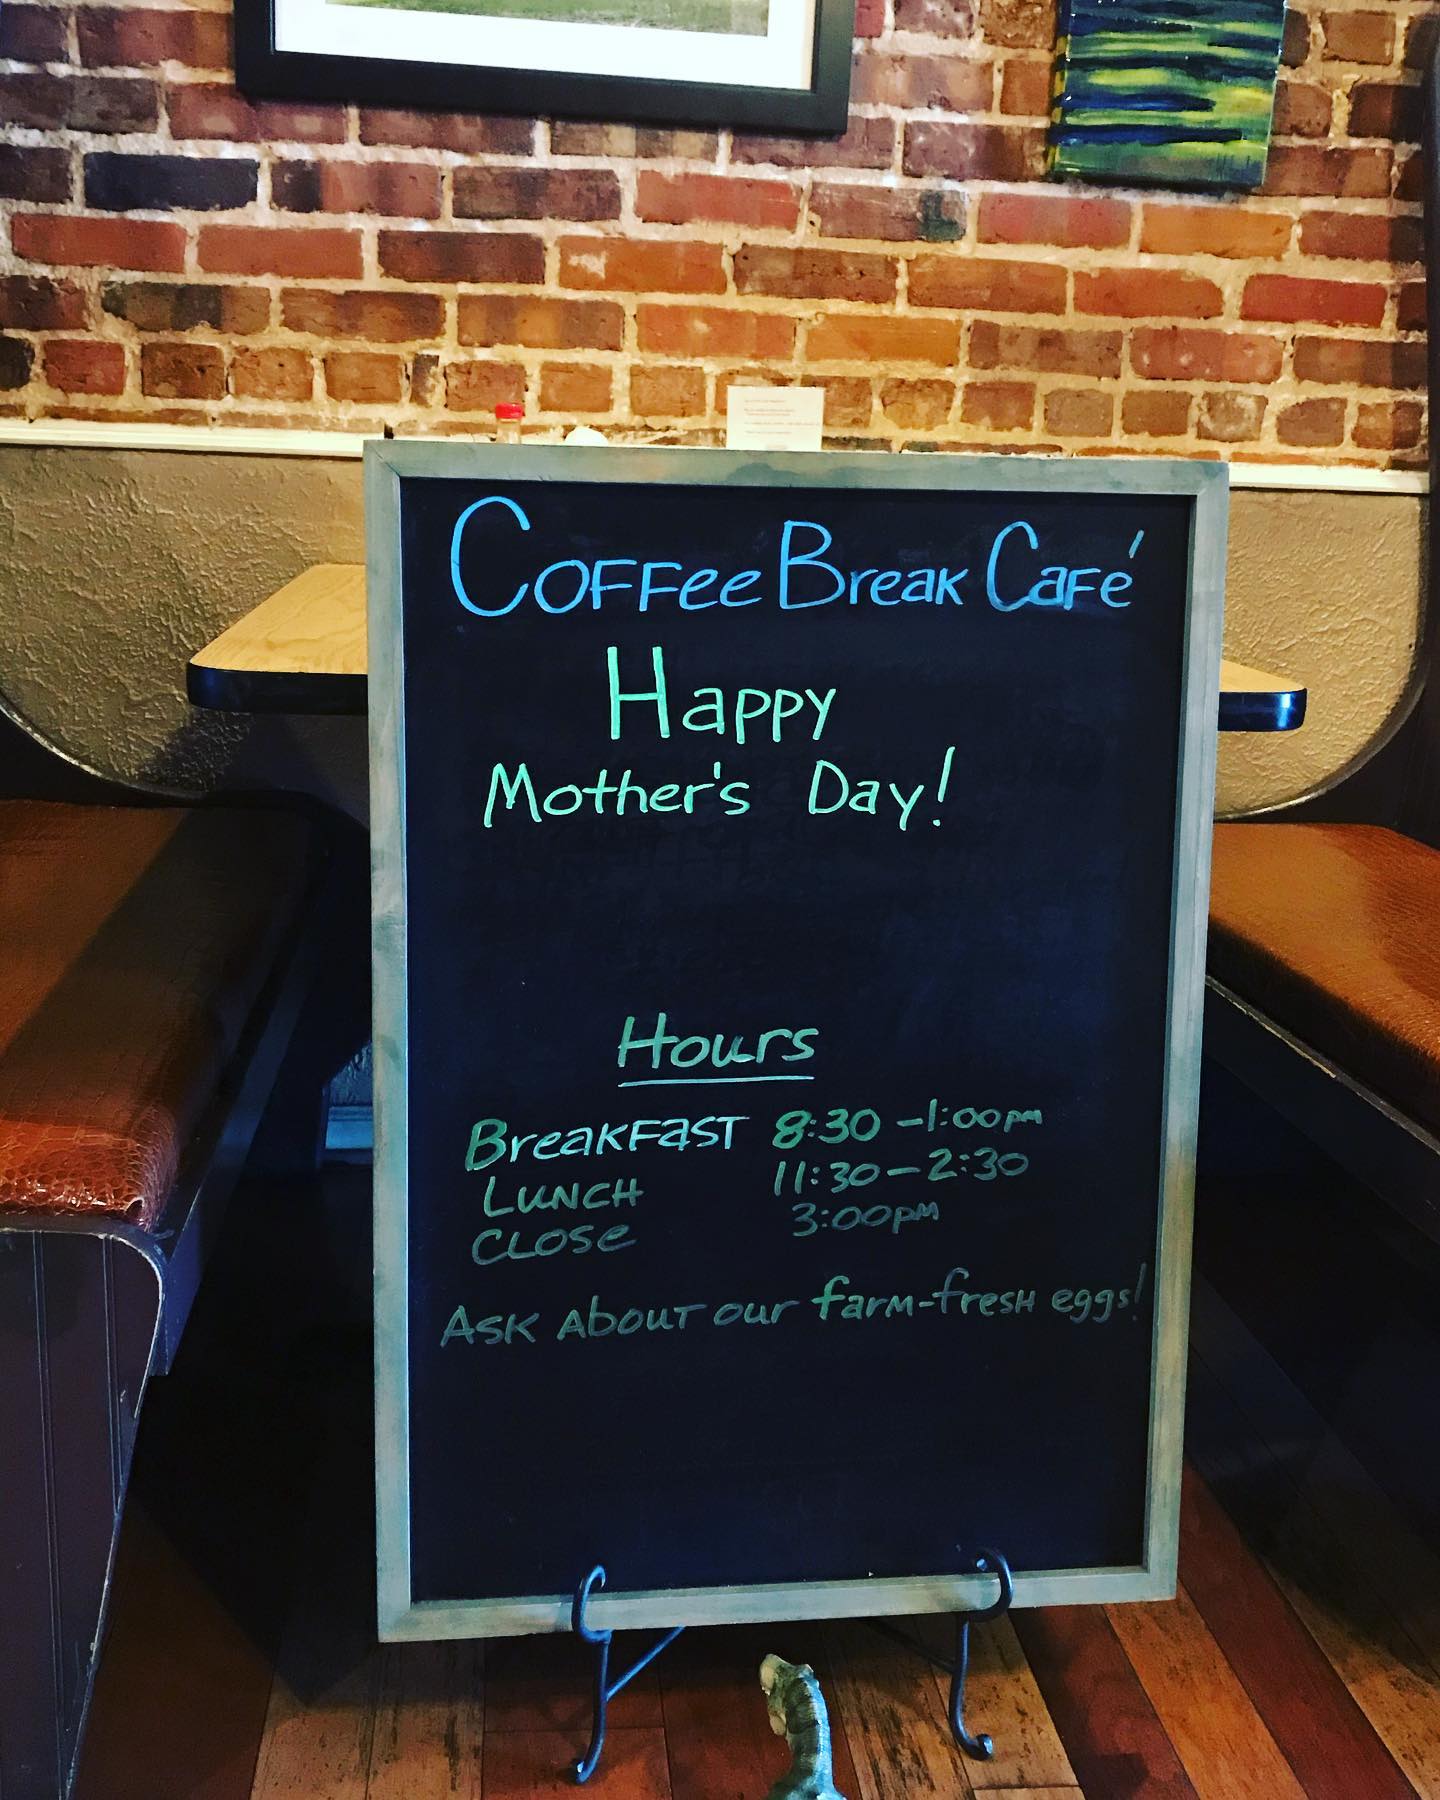 Coffee Break Café
Happy
Mother's Day!
Hours
Breakfast 8:30 - 1:00pm
Lunch 11:30 - 2:30
Close 3:00pm
Ask about our farm-fresh eggs!